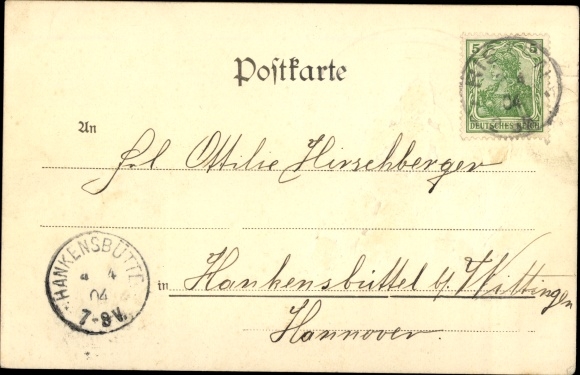 Postkarte
5 5
DEUTSCHES REICH
04
An
Frl. Ottilie Hirschberger
HANKENSBÜTTEL
4 4
04
7-8 V.
in Hankensbüttel b/ Wittingen
Hannover.